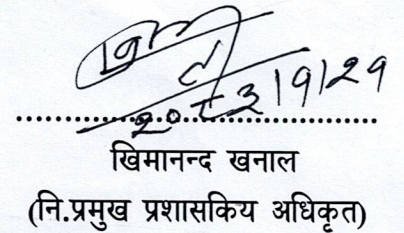 २०८३।१।२१
खिमानन्द खनाल
(नि.प्रमुख प्रशासकिय अधिकृत)